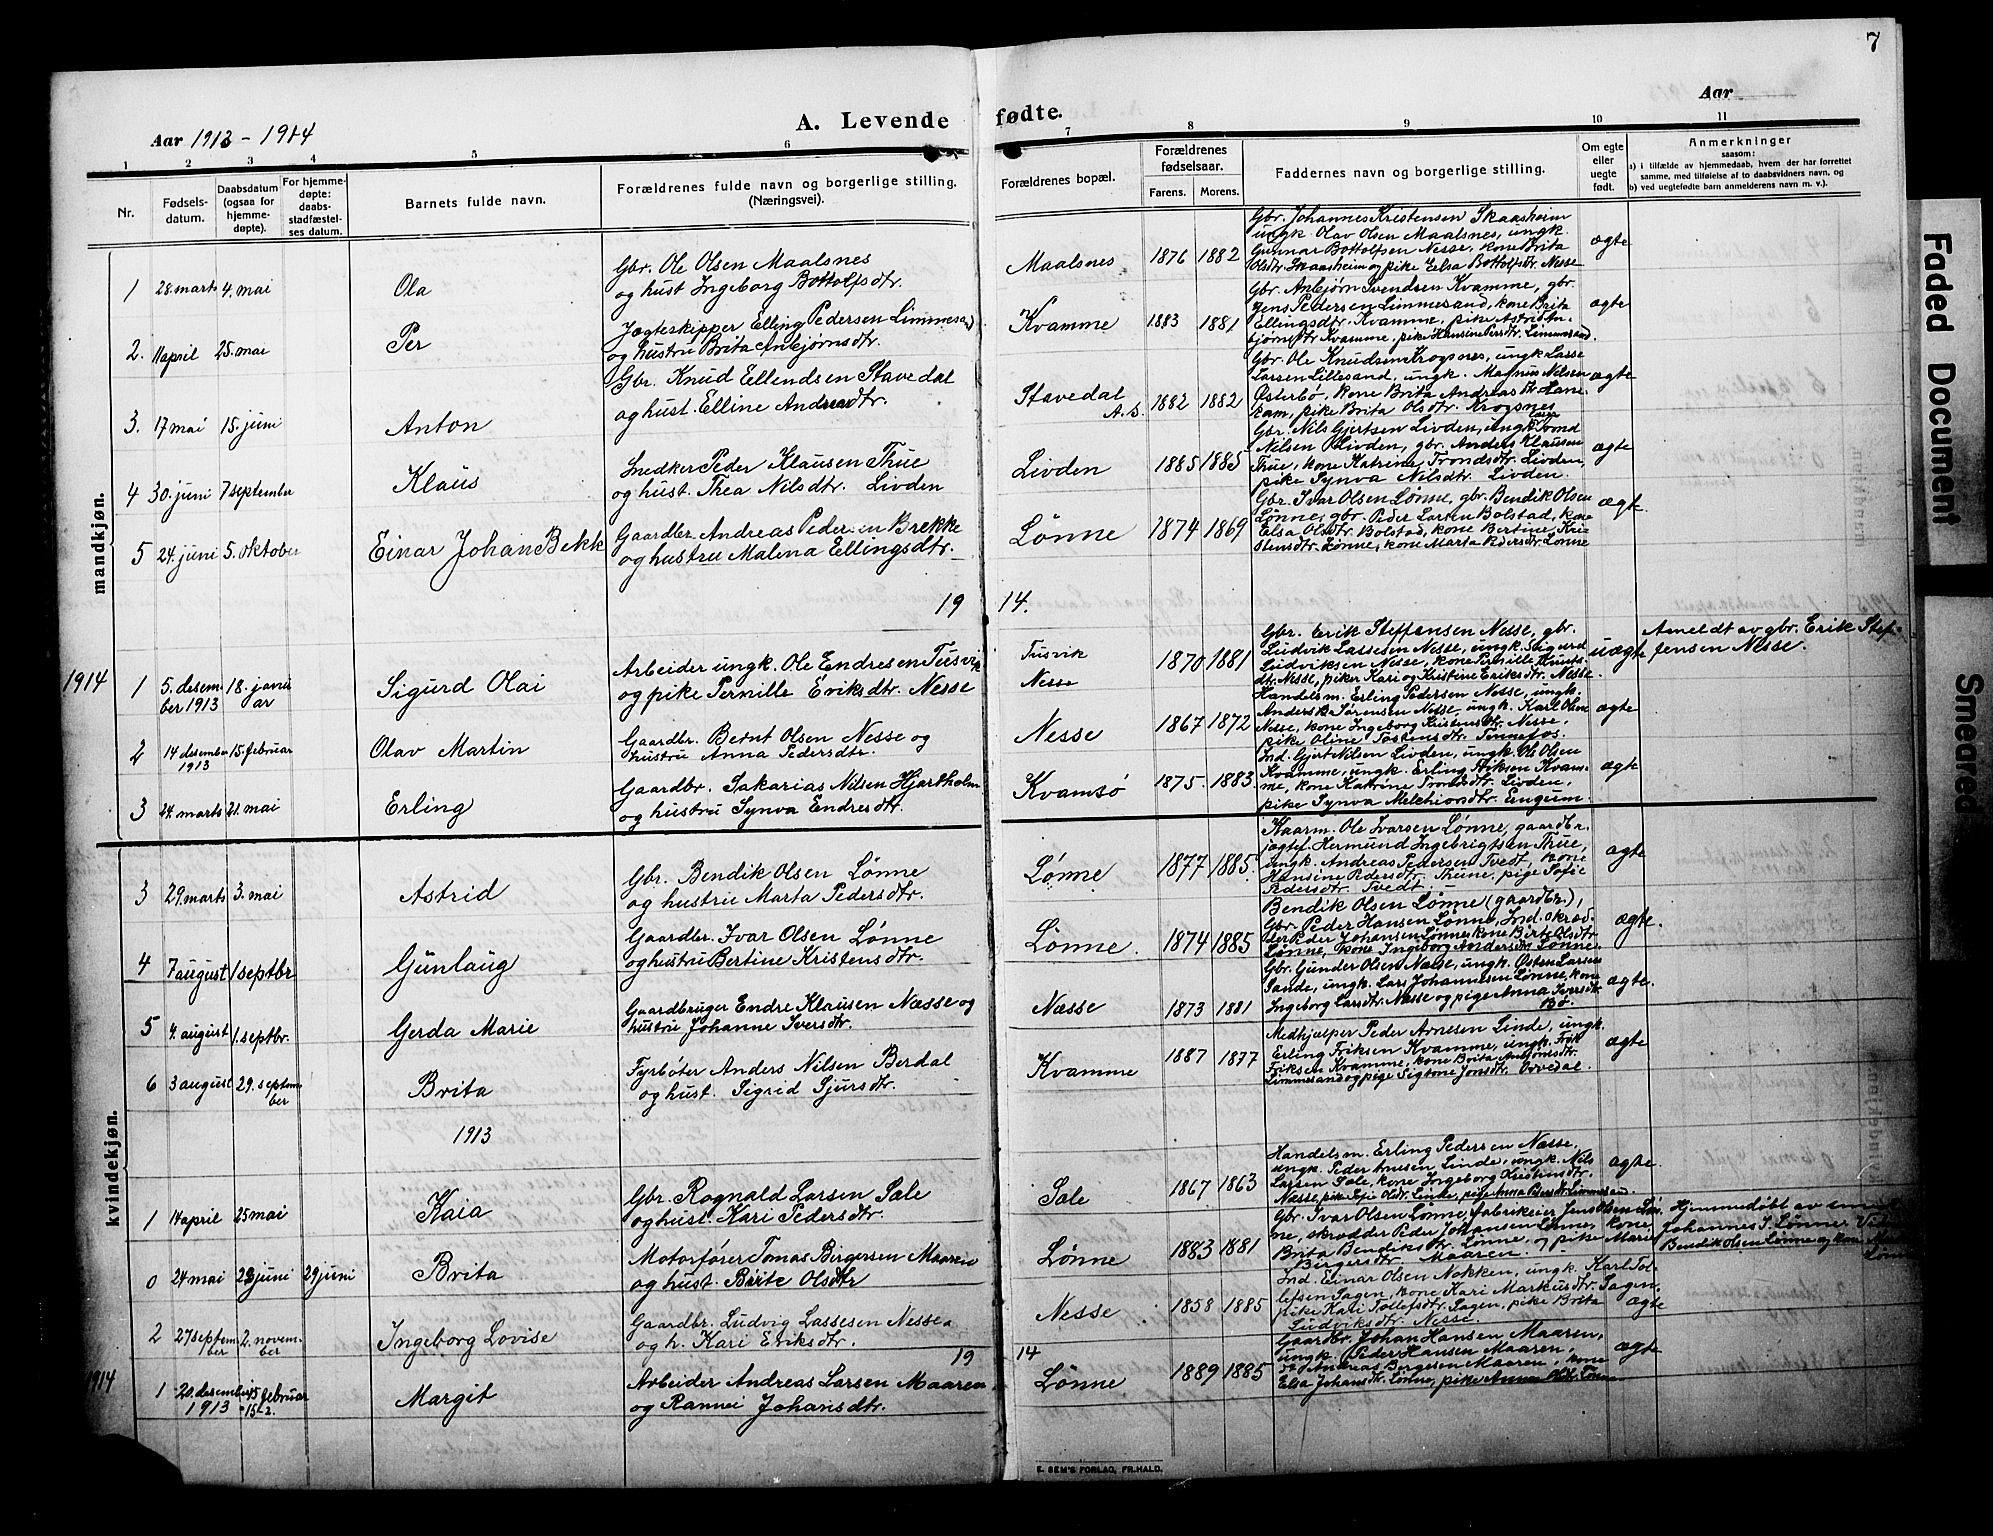 7
Aar 1913 - 1914
A. Levende fødte.
Aar
1 2 3 4 5 6 7 8 9 10 11
Nr.
Fødsels-
datum.
Daabsdatum
(ogsaa for
hjemme-
døpte).
For hjemme-
døpte:
daabs-
stadfæstel-
ses datum.
Barnets fulde navn.
Forældrenes fulde navn og borgerlige stilling.
(Næringsvei).
Forældrenes bopæl.
Forældrenes
fødselsaar.
Farens. Morens.
Faddernes navn og borgerlige stilling.
Om egte
eller
uegte
født.
Anmerkninger
saasom:
a) i tilfælde av hjemmedaab, hvem der har forrettet
samme, med tilføielse af to daabsvidners navn, og
b) ved uegtefødte barn anmelderens navn m. v.).
mandkjøn.
1 28. marts 4. mai Ola
Gbr. Ole Olsen Maalsnes
og hust Ingeborg Bottolfsdtr.
Maalsnes 1876 1882
Gbr. Johannes Kristensen Skaasheim
ungk. Olav Olsen Maalsnes, ungk.
Gunnar Bottolfsen Nesse, kone Brita
Olsdtr. Skaasheim og pike Eelsa Bottolfsdtr. Nesse
ægte
2. 11 april 25. mai Per
Jagteskipper Elling Pedersen Limmesand
og hustru Brita Anbjørnsdtr.
Kvamme 1883 1881
Gbr. Anbjørn Svendsen Kvamme, gbr.
Jens Pedersen Limmesand, kone Brita
Ellingsdtr. Kvamme, pike Astrid An-
bjørnsdtr Kvamme, pike Hansine Persdtr. Limmesand.
ægte
3. 17 mai 15. juni Anton
Gbr. Knud Ellendsen Stavedal
og hust. Elline Andreasdtr.
Stavedal
A.S. 1882 1882
Gbr. Ole Knudsen Krogsnes, ungk Lasse
Larsen Lillesand, ungk. Magnus Nilsen
Østerbø, kone Brita Andreas dtr Hane-
kam, pike Brita Olsdtr. Krogsnes
ægte
4 30. juni 7 september Klaus
Snedker Peder Klausen Thue
og hust. Thea Nilsdtr. Livden
Livden 1885 1885
Gbr. Nils Gjertsen Livden, ungk Trond
Nilsen Livden, gbr. Anders Klausen
Thue, kone Katrine Trondsdtr. Livden,
pike Synva Nilsdtr. Livden.
ægte
5 24. juni 5. oktober Einar Johan Bekk
Gaardbr. Andreas Pedersen Brekke
og hustru Malena Ellingsdtr.
Lønne 1874 1869
Gbr. Ivar Olsen Lønne, gbr. Bendik Olsen
Lønne, gbr. Peder Larsen Bolstad, kone
Elsa Olsdtr. Bolstad, kone Bertine Kri-
stensdtr. Lønne, kone Marta Pedersdtr Lønne
ægte
19 14.
1914 1 5. desem-
ber 1913 18. janu
ar Sigurd Olai
Arbeider ungk. Ole Endresen Tusvik
og pike Pernille Eriksdtr. Nesse
Tusvik
Nesse 1870 1881
Gbr. Erik Steffensen Nesse, gbr.
Ludvik Lassesen Nesse, ungk. Sigurd
Ludviksen Nesse, kone Pernille Knuts-
dtr. Nesse, piker Kari og Kristine Eriksdtr. Nesse.
uægte
Anmeldt av gbr. Erik Stef-
fensen Nesse.
2 14 desember
1913 15. februar Olav Martin
Gaardbr. Bernt Olsen Nesse og
hustru Anna Pedersdtr.
Nesse 1867 1872
Handelsm. Erling Pedersen Nesse, ungk.
Anders Sørensen Nesse ungk. Karl Olsen
Nesse, kone Ingeborg Kristensdtr. Nesse,
pike Oline Tostensdtr. Tennefos.
ægte
3 24. marts 21. mai Erling
Gaardbr. Sakarias Nilsen Hjartholm
og hustru Synva Endresdtr.
Kvamsø 1875. 1883.
Ind. Gjert Nilsen Livden, ungk. Ole Olsen
Kvamme, ungk. Erling Eriksen Kvam-
me, kone Katrine Trondsdtr. Livden
pike Synva Melchiorsdtr. Engum.
ægte
kvindekjøn.
3 29. marts 3. mai Astrid
Gbr. Bendik Olsen Lønne
og hustru Marta Pedersdtr.
Lønne 1877 1885.
Kaarm. Ole Ivarsen Lønne, gaardbr.
jagtef. Hermund Ingebrigtsen Thue,
ungk. Andreas Pedersen Tvedt, kone
Hansine Pedersdtr. Thune, pige Sofie
Pedersdtr. Tvedt.
ægte
4 7 august 1 septbr Gunlaug
Gaardbr. Ivar Olsen Lønne
og hustru Bertine Kristensdtr.
Lønne. 1874 1885
Bendik Olsen Lønne (gaardbr.),
Gbr. Peder Hansen Lønne, Ind. skræd-
der Peder Johansen Lønne, kone Birte Olsdtr
Lønne, kone Ingeborg Andersdtr Lønne.
ægte.
5 4. august 1. septbr. Gerda Marie
Gaardbruger Endre Klausen Næsse og
hustru Johanne Iversdtr.
Næsse 1873 1881
Gbr. Gunder Olsen Næsse, ungk. Østen Larsen
Sande, ungk. Lars Johannesen Lønne, kone
Ingeborg Larsdtr. Næsse og pige Anna Iversdtr
Bø.
ægte.
6 3 august 29. septem-
ber Brita
Fyrbøter Anders Nilsen Berdal
og hust. Sigrid Sjursdtr.
Kvamme 1887 1877
Medhjælper Peder Arnesen Linde, ungk.
Erling Eriksen Kvamme, ungk. Erik
Eriksen Kvamme, kone Brita Anbjønsdtr.
Limmesand og pige Sigtone Jonsdtr. Orvedal.
ægte
1913
1 14 april 25 mai Kaia
Gbr. Rognald Larsen Sale
og hust. Kari Pedersdtr.
Sale 1867 1863
Handelsm. Erling Pedersen Næsse,
ungk. Peder Arnesen Linde, ungk. Nils
Larsen Sale, kone Ingeborg Kristensdtr.
Næsse, pike Sofie Oldtr. Linde, pige Anna Persdtr. Limmesand.
ægte.
0 24 mai 28 juni 29 juni Brita
Motorfører Tomas Birgersen Maaren
og hust. Birte Olsdtr
Lønne 1883 1881
Gbr. Ivar Olsen Lønne, fabrikeier Jens Olsen Løn-
ne, skrædder Peder Johansen Lønne, kone
Brita Bendiksdtr. Lønne og pike Marie
Birgersdtr. Maaren.
Hjemmedøbt av
Johannes J. Lønne.
Bendik Olsen Lønne og kone
Lønne
2 27 septem-
ber 2. novem-
ber Ingeborg Lovise
Gaardbr. Ludvig Lassesen Nesse
og h. Kari Eriksdtr.
Nesse 1858 1885
Ind. Einar Olsen Nokken, ungk. Karl Tol-
lefsen Sagen, kone Kari Markusdtr. Sagen,
pike Kari Tollefsdtr. Sagen, pike Brita
Ludviksdtr. Nesse.
ægte
19 14
1914 1 20. desember
1913 15 februar
15-2. Margit
Arbeider Andreas Larsen Maaren
og Rannei Johansdtr.
Lønne 1889 1885
Gaardbr. Johan Hansen Maaren,
ungk. Peder Hansen Maaren,
Andreas Bergesen Maaren, kone
Elsa Johansdtr. Lønne, pike Anna Olsdtr. Lønne
ægte
E. SEM'S FORLAG, FR.HALD.
Faded Document
Smeared